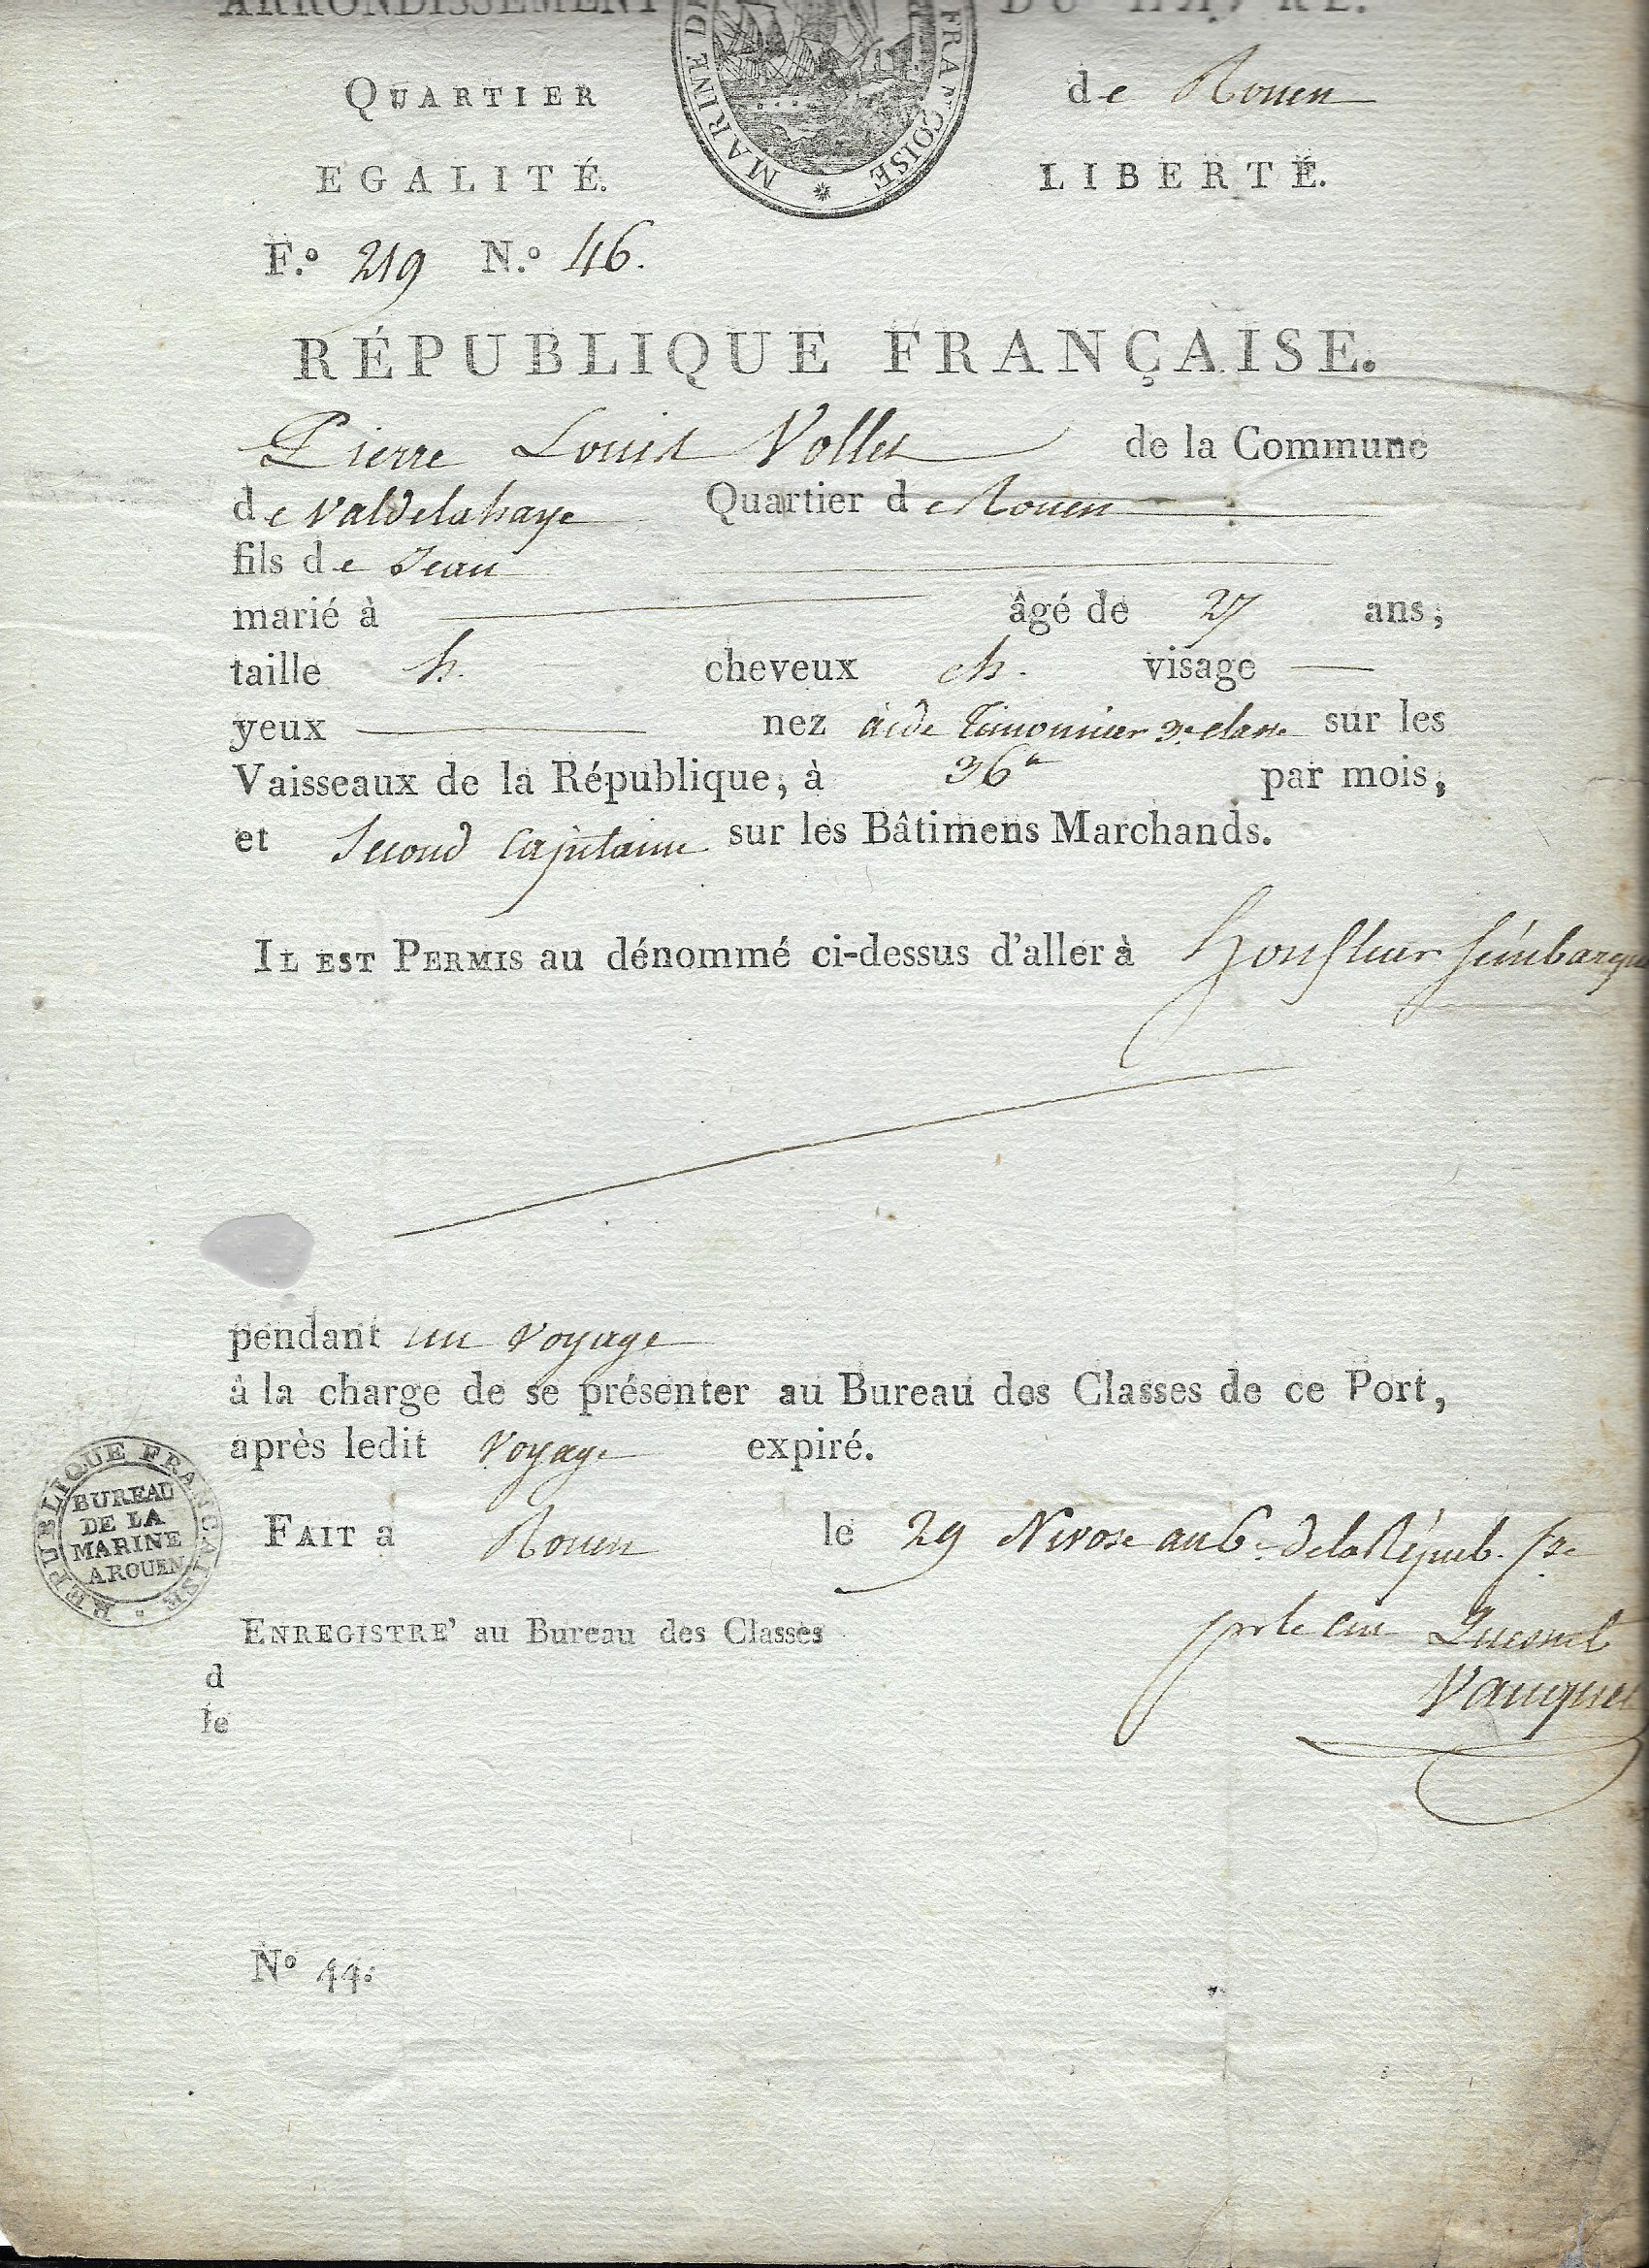 ARRONDISSEMENT DU HAVRE.
MARINE FRANÇOISE
QUARTIER de Rouen
EGALITÉ. LIBERTÉ.
F.o 219 N.o 46.
RÉPUBLIQUE FRANÇAISE.
Pierre Louis Vollet de la Commune
de Valdelahaye Quartier de Rouen
fils de Jean
marié à âgé de 27 ans,
taille h. cheveux ch. visage
yeux nez aide Timonnier 3e classe sur les
Vaisseaux de la République, à 36 par mois,
et Second Capitaine sur les Bâtimens Marchands.
IL EST PERMIS au dénommé ci-dessus d'aller à honfleur s'embarquer
pendant un voyage
à la charge de se présenter au Bureau des Classes de ce Port,
après ledit voyage expiré.
RÉPUBLIQUE FRANCAISE
BUREAU
DE LA
MARINE
A ROUEN
FAIT a Rouen le 29 Nivose an 6e de la Répub. fse
ENREGISTRE' au Bureau des Classes pr le Quesnel
d Vauquel
le
No 44.